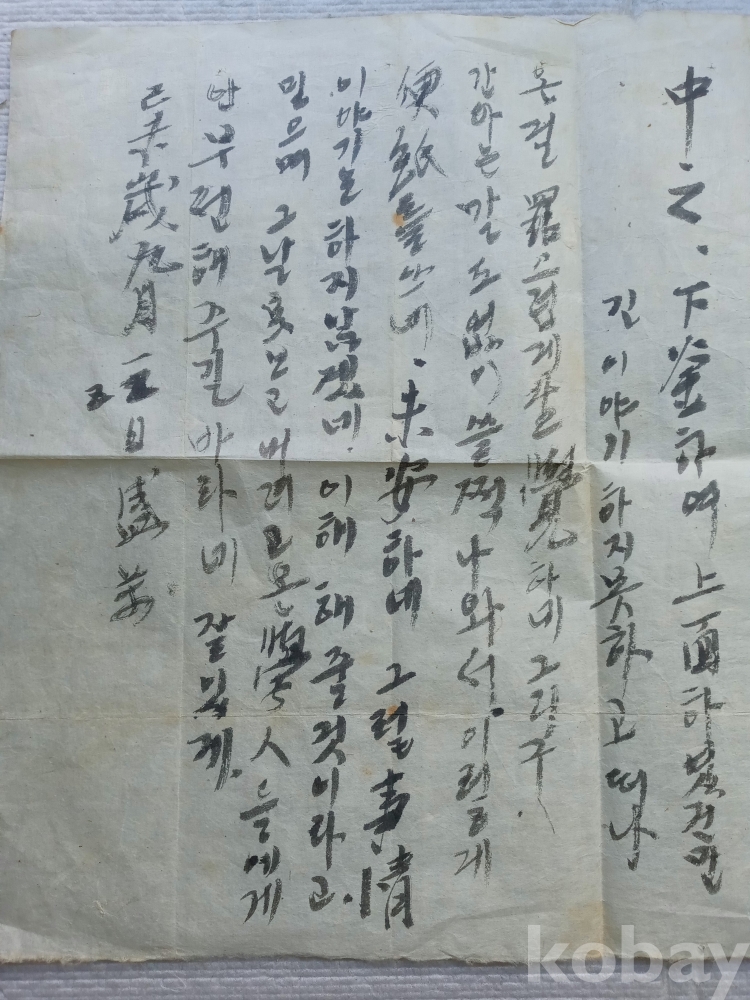 中之. 下釜하여 上面하였건만
긴 이야기 하지못하고 떠남
온걸 罪스럽게 生覺하네 그렇구
간아는 말 도 없이 쓸쩍 나와서 이렇게
便紙를 쓰네. 未安하네 그럴 事情
이야기는 하지 남겠네. 이해 해 줄것이라고.
믿으며 그날 놓고 버리고 온 學人들에게
부련해 주길 바라네 잘있게.
己未歲 九月 日 盛
kobay